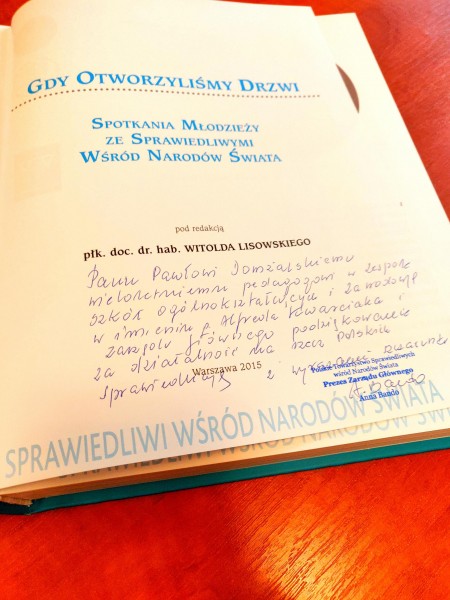 GDY OTWORZYLIŚMY DRZWI
SPOTKANIA MŁODZIEŻY
ZE SPRAWIEDLIWYMI
WŚRÓD NARODÓW ŚWIATA
pod redakcją
płk. doc. dr. hab. WITOLDA LISOWSKIEGO
Panu Pawłowi Domżalskiemu
wieloletniemu pedagogowi w zespole
szkół ogólnokształcących i zawodowych
w imieniu p. Alfreda i
zarządu głównego podziękowanie
za działalność na rzecz polskich
sprawiedliwych z wyrazami szacunku
Warszawa 2015
Polskie Towarzystwo Sprawiedliwych
wśród Narodów Świata
Prezes Zarządu Głównego
A. Bando
Anna Bando
SPRAWIEDLIWI WŚRÓD NARODÓW ŚWIATA
SPRAWIEDLIWI WŚRÓD NARODÓW ŚWIATA